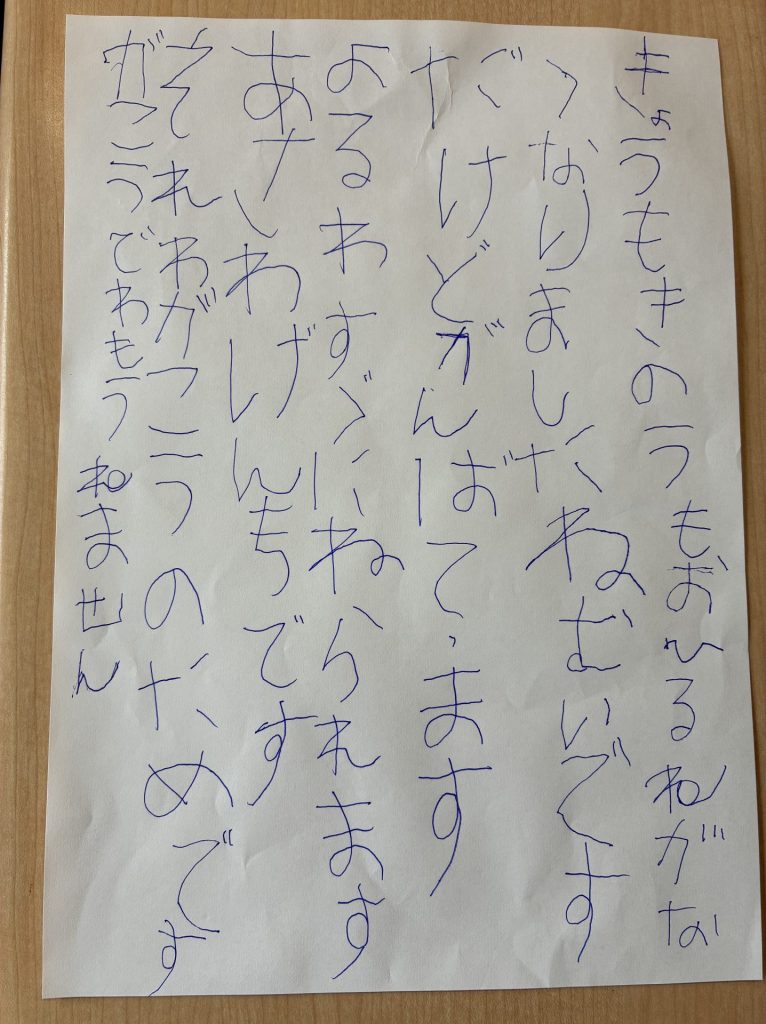 きょうもきのうもおひるねがな
くなりましたねむいです
だけどがんばています
よるわすぐにねられます
あさわげんきです
それわがっこうのためです
がっこうでわもうねません